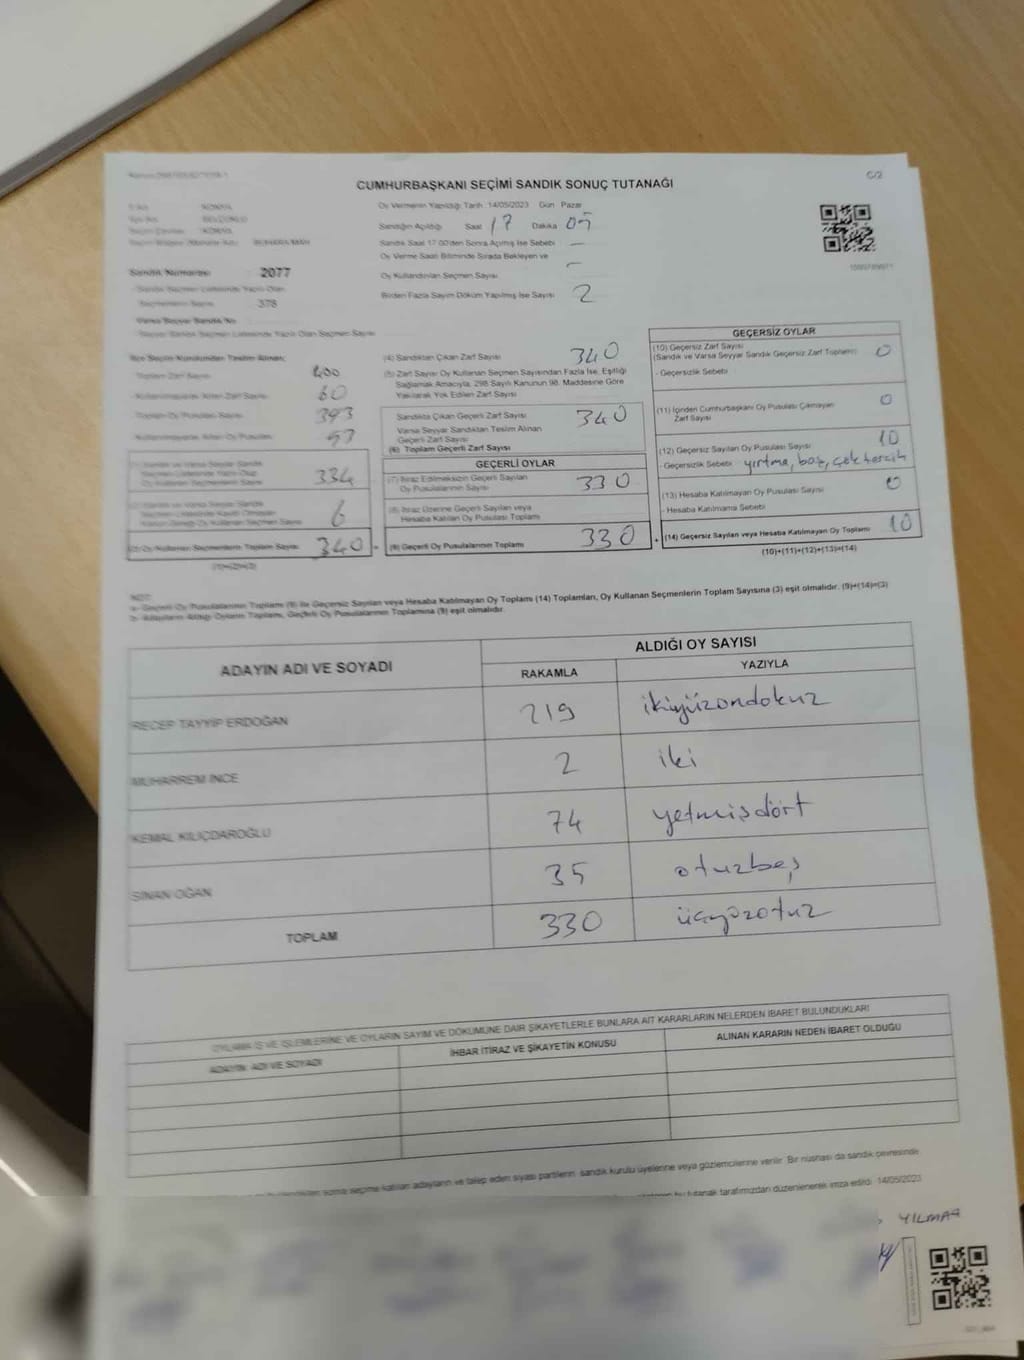 C/2
CUMHURBAŞKANI SEÇİMİ SANDIK SONUÇ TUTANAĞI
Oy Vermenin Yapıldığı Tarih :14/05/2023 Gün Pazar
KONYA
Sandığın Açıldığı Saat 17 Dakika 05
KONYA
Sandık Saat 17.00'den Sonra Açılmış İse Sebebi —
Oy Verme Saati Bitiminde Sırada Bekleyen ve
Oy Kullandırılan Seçmen Sayısı —
Sandık Numarası 2077
Birden Fazla Sayım Döküm Yapılmış İse Sayısı 2
Sandık Seçmen Listesinde Yazılı Olan
Seçmenlerin Sayısı 378
Varsa Seyyar Sandık No
İlçe Seçim Kurulundan Teslim Alınan;
Toplam Zarf Sayısı 400
Kullanılmayarak Artan Zarf Sayısı 60
Toplam Oy Pusulası Sayısı 393
Kullanılmayarak Artan Oy Pusulası
334
6
(3) Oy Kullanan Seçmenlerin Toplam Sayısı 340
(1)+(2)=(3)
(4) Sandıktan Çıkan Zarf Sayısı 340
(5) Zarf Sayısı Oy Kullanan Seçmen Sayısından Fazla İse, Eşitliği
Sağlamak Amacıyla, 298 Sayılı Kanunun 98. Maddesine Göre
Yakılarak Yok Edilen Zarf Sayısı
Sandıkta Çıkan Geçerli Zarf Sayısı 340
Varsa Seyyar Sandıktan Teslim Alınan
Geçerli Zarf Sayısı
(6) Toplam Geçerli Zarf Sayısı
GEÇERLİ OYLAR
(7) İtiraz Edilmeksizin Geçerli Sayılan
Oy Pusulalarının Sayısı 330
(8) İtiraz Üzerine Geçerli Sayılan veya
Hesaba Katılan Oy Pusulası Toplamı
(9) Geçerli Oy Pusulalarının Toplamı 330
GEÇERSİZ OYLAR
(10) Geçersiz Zarf Sayısı
(Sandık ve Varsa Seyyar Sandık Geçersiz Zarf Toplamı) 0
- Geçersizlik Sebebi
(11) İçinden Cumhurbaşkanı Oy Pusulası Çıkmayan
Zarf Sayısı 0
(12) Geçersiz Sayılan Oy Pusulası Sayısı 10
- Geçersizlik Sebebi yırtma, boş, çok tercih
(13) Hesaba Katılmayan Oy Pusulası Sayısı 0
- Hesaba Katılmama Sebebi
(14) Geçersiz Sayılan veya Hesaba Katılmayan Oy Toplamı 10
(10)+(11)+(12)+(13)=(14)
NOT:
a- Geçerli Oy Pusulalarının Toplamı (9) ile Geçersiz Sayılan veya Hesaba Katılmayan Oy Toplamı (14) Toplamları, Oy Kullanan Seçmenlerin Toplam Sayısına (3) eşit olmalıdır. (9)+(14)=(3)
b- Adayların Aldığı Oyların Toplamı, Geçerli Oy Pusulalarının Toplamına (9) eşit olmalıdır.
ADAYIN ADI VE SOYADI
ALDIĞI OY SAYISI
RAKAMLA YAZIYLA
RECEP TAYYİP ERDOĞAN 219 ikiyüzondokuz
MUHARREM İNCE 2 iki
KEMAL KILIÇDAROĞLU 74 yetmişdört
SİNAN OĞAN 35 otuzbeş
TOPLAM 330 üçyüzotuz
OYLAMA İŞ VE İŞLEMLERİNE VE OYLARIN SAYIM VE DÖKÜMÜNE DAİR ŞİKAYETLERLE BUNLARA AİT KARARLARIN NELERDEN İBARET BULUNDUKLARI
ADAYIN ADI VE SOYADI İHBAR İTİRAZ VE ŞİKAYETİN KONUSU ALINAN KARARIN NEDEN İBARET OLDUĞU
sonra seçime katılan adayların ve talep eden siyasi partilerin sandık kurulu üyelerine veya gözlemcilerine verilir. Bir nüshası da sandık çevresinde
bu tutanak tarafımızdan düzenlenerek imza edildi. 14/05/2023
YILMAZ